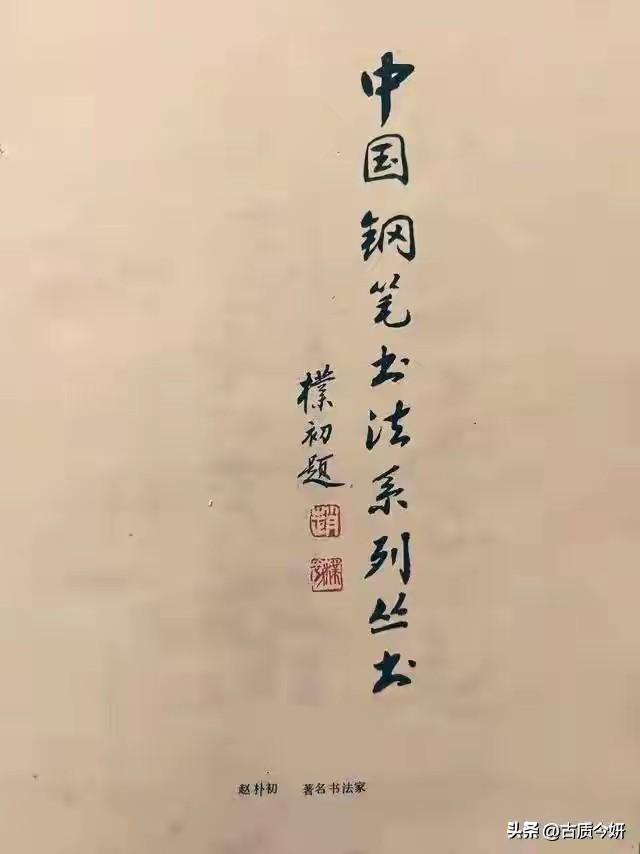 中国钢笔书法系列丛书
樸初题
赵朴初 著名书法家
头条 @古质今妍